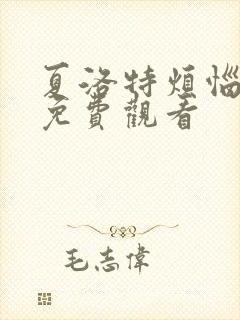 夏洛特煩惱
免費觀看
毛志偉